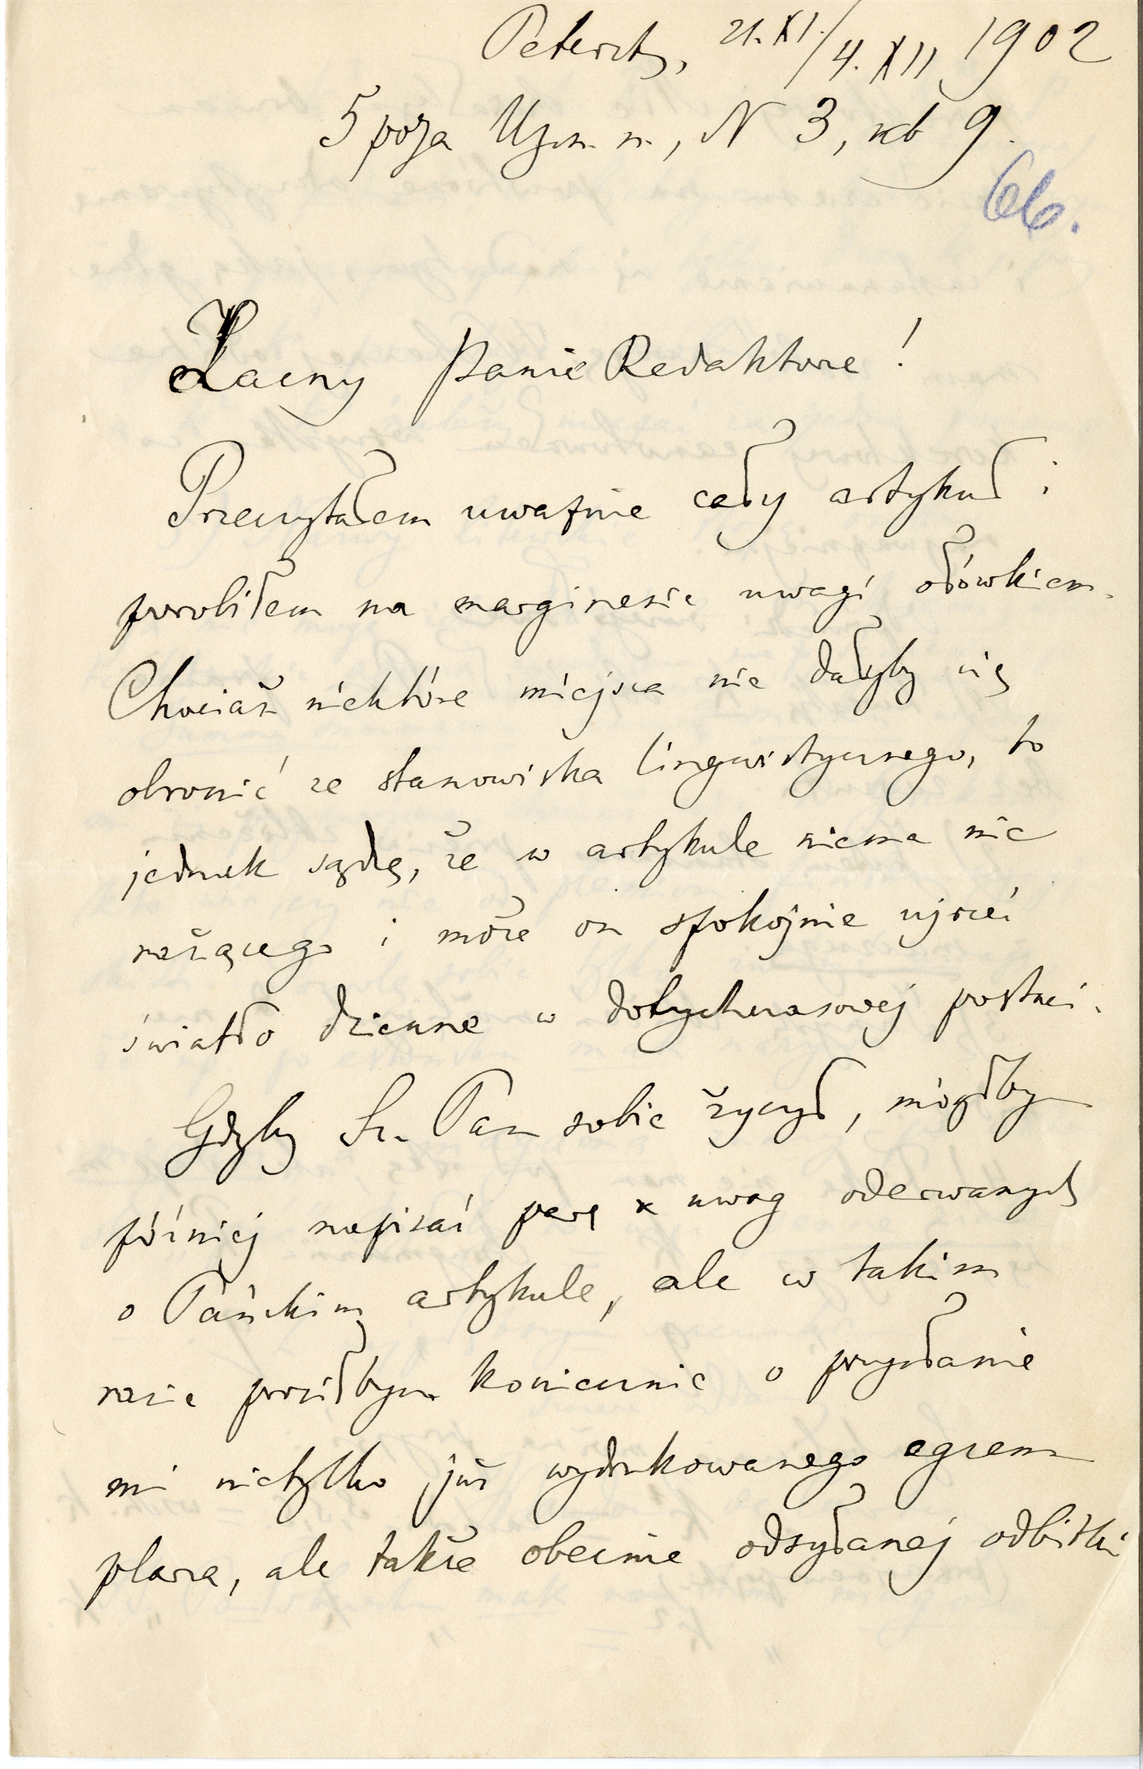 Petersb., 21.XI./4.XII 1902
5 рота Изм. п., N 3, кв 9.
66.
Zacny Panie Redaktorze!
Przeczytałem uważnie cały artykuł i
porobiłem na marginesie uwagi ołówkiem.
Chociaż niektóre miejsca nie dałyby się
obronić ze stanowiska lingwistycznego, to
jednak sądzę, że w artykule niema nic
rażącego i może on spokojnie ujrzeć
światło dzienne w dotychczasowej postaci.
Gdyby Sz. Pan sobie życzył, mógłbym
później napisać parę uwag oderwanych
o Pańskim artykule, ale w takim
razie prosiłbym koniecznie o przysłanie
mi nietylko już wydrukowanego egzem
plarza, ale także obecnie odsyłanej odbitki